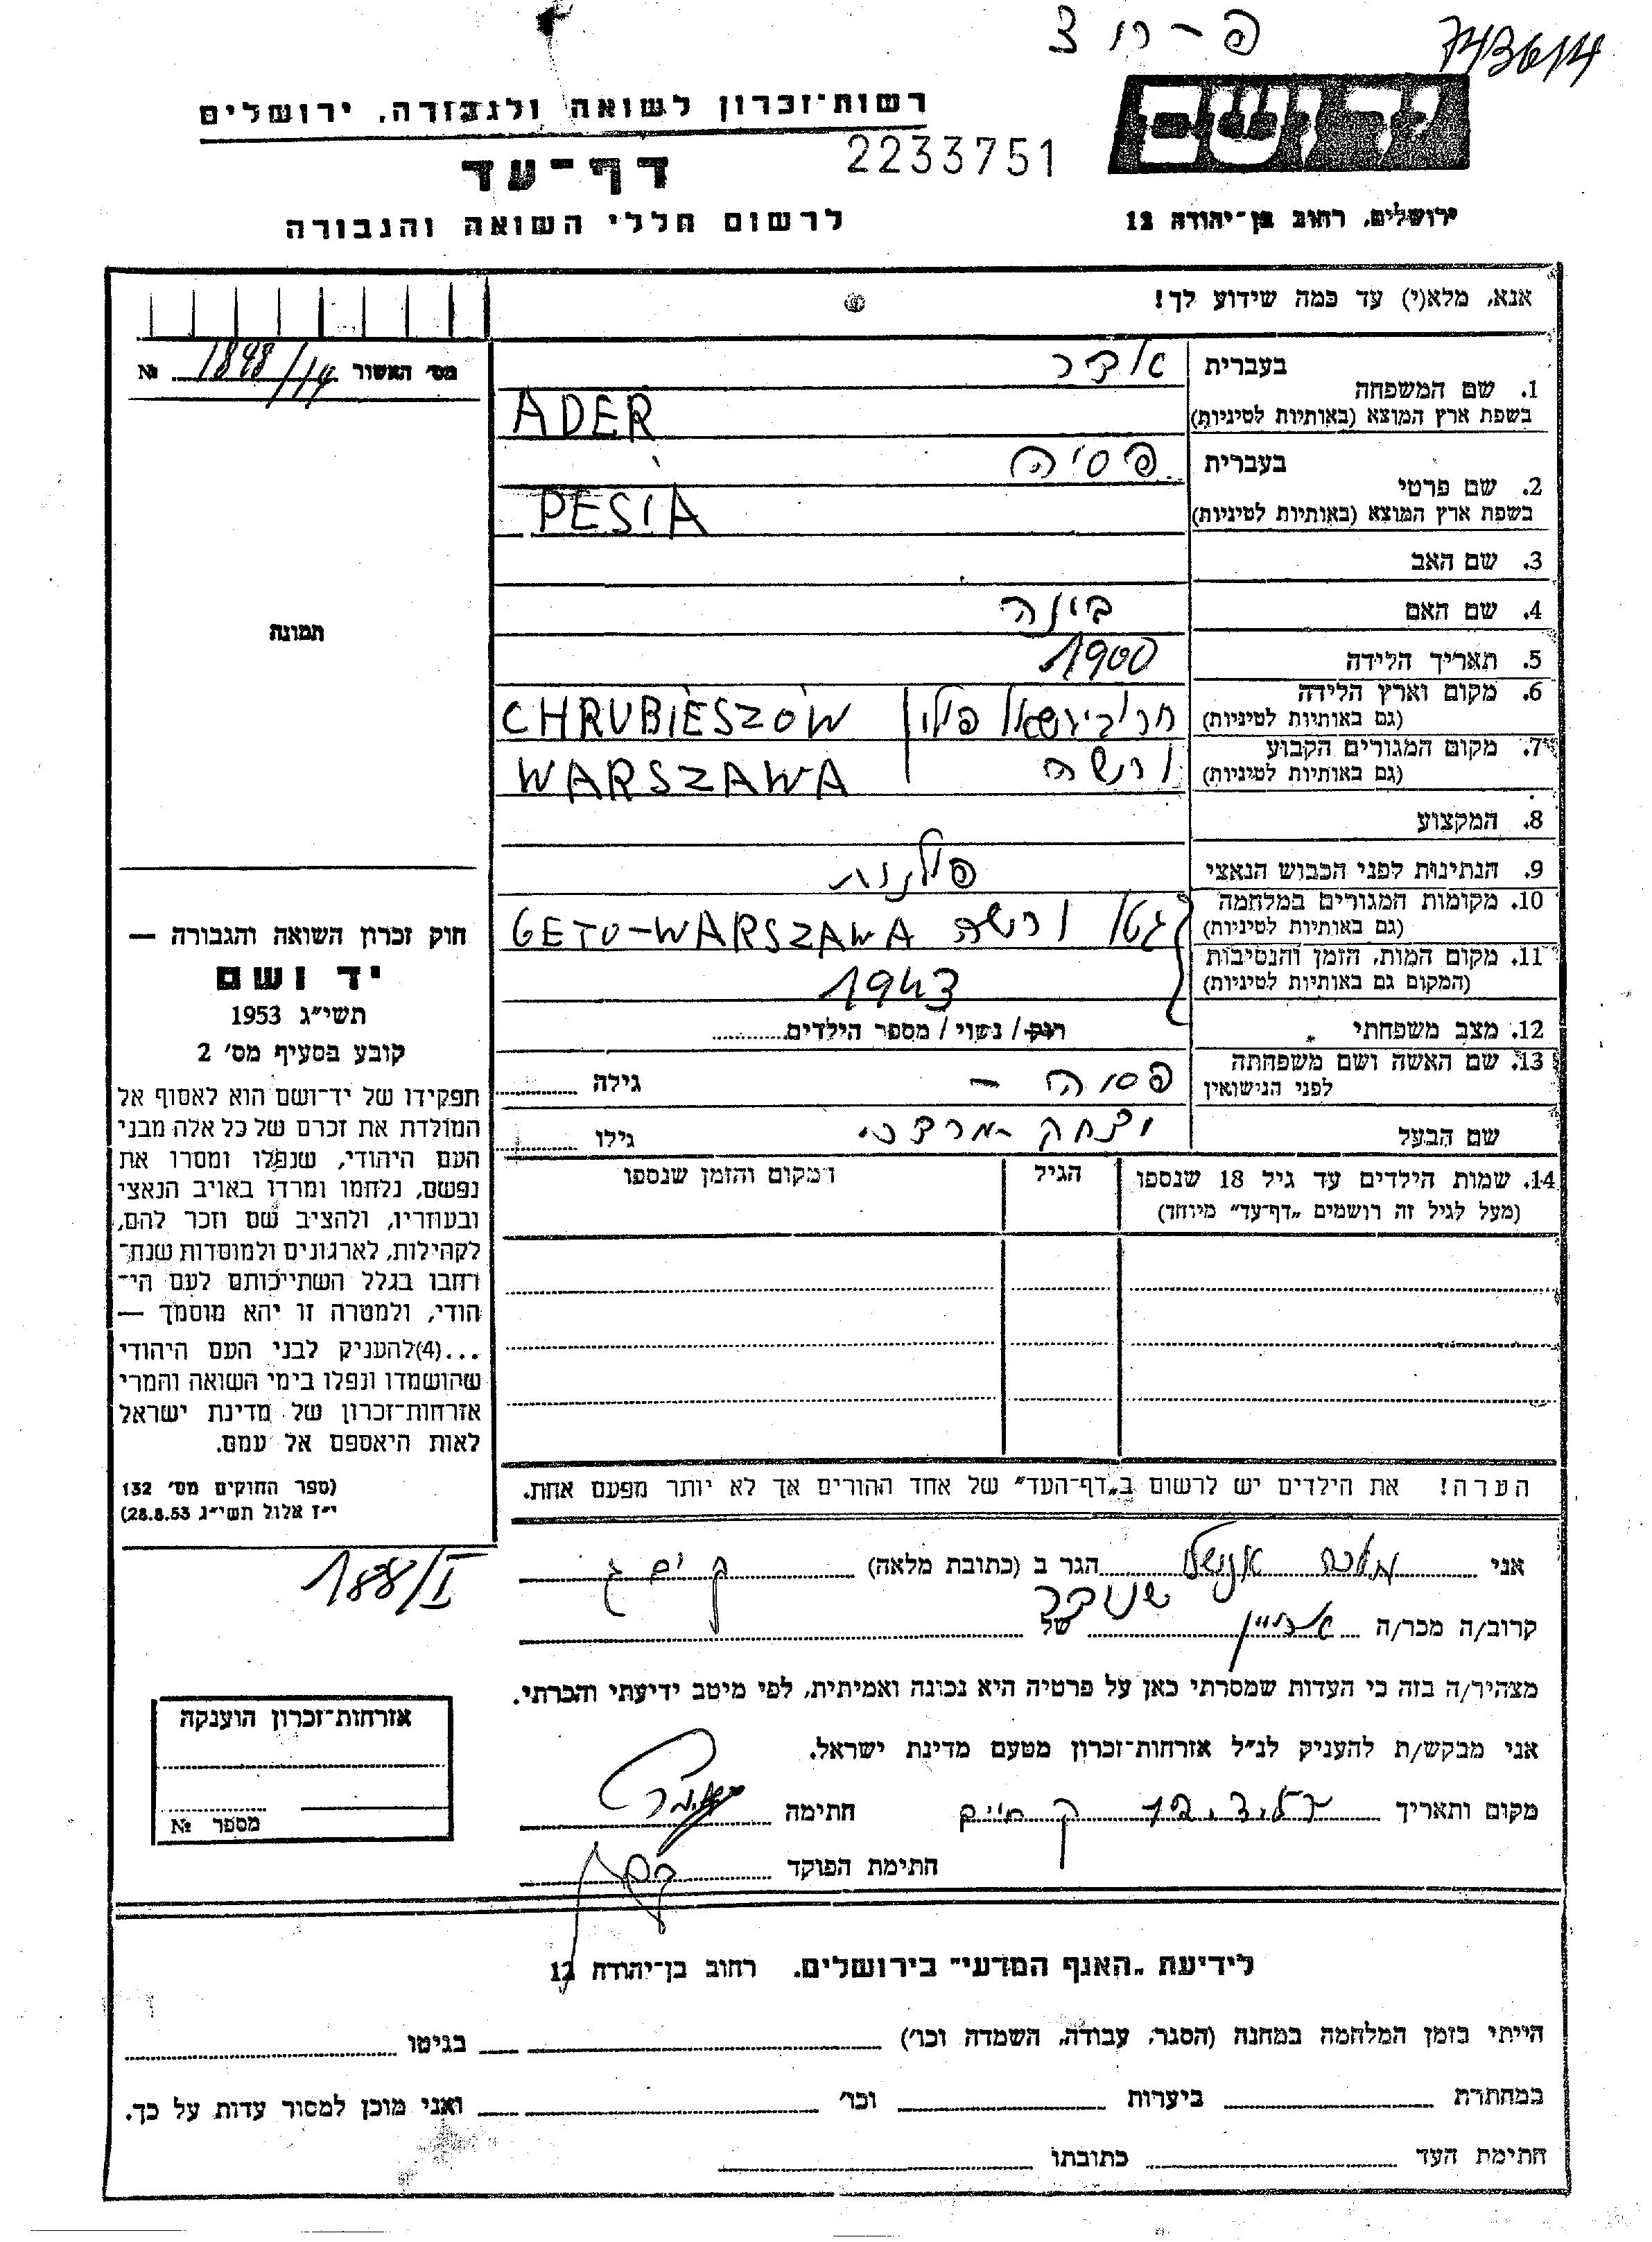 פ-רוצ
743614
יד ושם
רשות־זכרון לשואה ולגבורה, ירושלים
2233751
דף־עד
ירושלים, רחוב בן־יהודה 12
לרשום חללי השואה והגבורה
אנא, מלא(י) עד כמה שידוע לך!
מס׳ האשור 1898/14 №
1. שם המשפחה בעברית אדר
בשפת ארץ המוצא (באותיות לטיניות) ADER
2. שם פרטי בעברית פסיה
בשפת ארץ המוצא (באותיות לטיניות) PESIA
3. שם האב
4. שם האם בינה
5. תאריך הלידה 1900
6. מקום וארץ הלידה
(גם באותיות לטיניות) פולין CHRUBIESZÓW
7. מקום המגורים הקבוע
(גם באותיות לטיניות) ורשה WARSZAWA
8. המקצוע
9. הנתינות לפני הכבוש הנאצי פולנית
10. מקומות המגורים במלחמה
(גם באותיות לטיניות) גטו ורשה GETO-WARSZAWA
11. מקום המות, הזמן והנסיבות
(המקום גם באותיות לטיניות) 1943
12. מצב משפחתי רווק / נשוי / מספר הילדים
13. שם האשה ושם משפחתה
לפני הנישואין פסיה – גילה
שם הבעל יצחק מרדכי גילו
14. שמות הילדים עד גיל 18 שנספו הגיל המקום והזמן שנספו
(מעל לגיל זה רושמים „דף־עד״ מיוחד)
הערה! את הילדים יש לרשום ב„דף־העד״ של אחד ההורים אך לא יותר מפעם אחת.
תמונה
חוק זכרון השואה והגבורה —
יד ושם
תשי״ג 1953
קובע בסעיף מס׳ 2
תפקידו של יד־ושם הוא לאסוף אל
המולדת את זכרם של כל אלה מבני
העם היהודי, שנפלו ומסרו את
נפשם, נלחמו ומרדו באויב הנאצי
ובעוזריו, ולהציב שם וזכר להם,
לקהילות, לארגונים ולמוסדות שנח־
רחבו בגלל השתייכותם לעם הי־
הודי, ולמטרה זו יהא מוסמך —
...(4)להעניק לבני העם היהודי
שהושמדו ונפלו בימי השואה והמרי
אזרחות־זכרון של מדינת ישראל
לאות היאספם אל עמם.
(ספר החוקים מס׳ 132
י״ז אלול תשי״ג 28.8.53)
188/I
אני מלכה אנשל שנידר הגר ב (כתובת מלאה) ק ים
קרוב/ה מכר/ה של
מצהיר/ה בזה כי העדות שמסרתי כאן על פרטיה היא נכונה ואמיתית, לפי מיטב ידיעתי והכרתי.
אני מבקש/ת להעניק לנ״ל אזרחות־זכרון מטעם מדינת ישראל.
מקום ותאריך ק חיים חתימה
חתימת הפוקד
אזרחות־זכרון הוענקה
מספר №
לידיעת „האגף המדעי״ בירושלים. רחוב בן־יהודה 12
הייתי בזמן המלחמה במחנה (הסגר, עבודה, השמדה וכו׳) בגיטו
במחתרת ביערות וכו׳ ואני מוכן למסור עדות על כך.
חתימת העד כתובתו